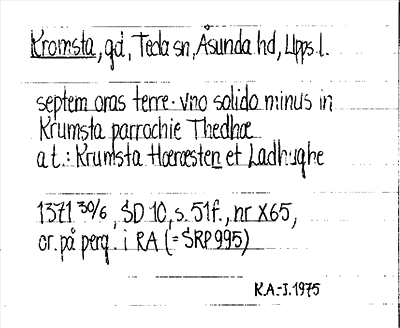 Kromsta, gd, Teda sn, Åsunda hd, Upps. l.
septem oras terre. vno solido minus in
Krumsta parrochie Thedhæ
a t.: Krumsta Hæræsten et Ladhughe
1371 30/6, SD 10, s. 51f., nr X65,
or. på perg. i RA (= SRP 995)
K.A.-J. 1975